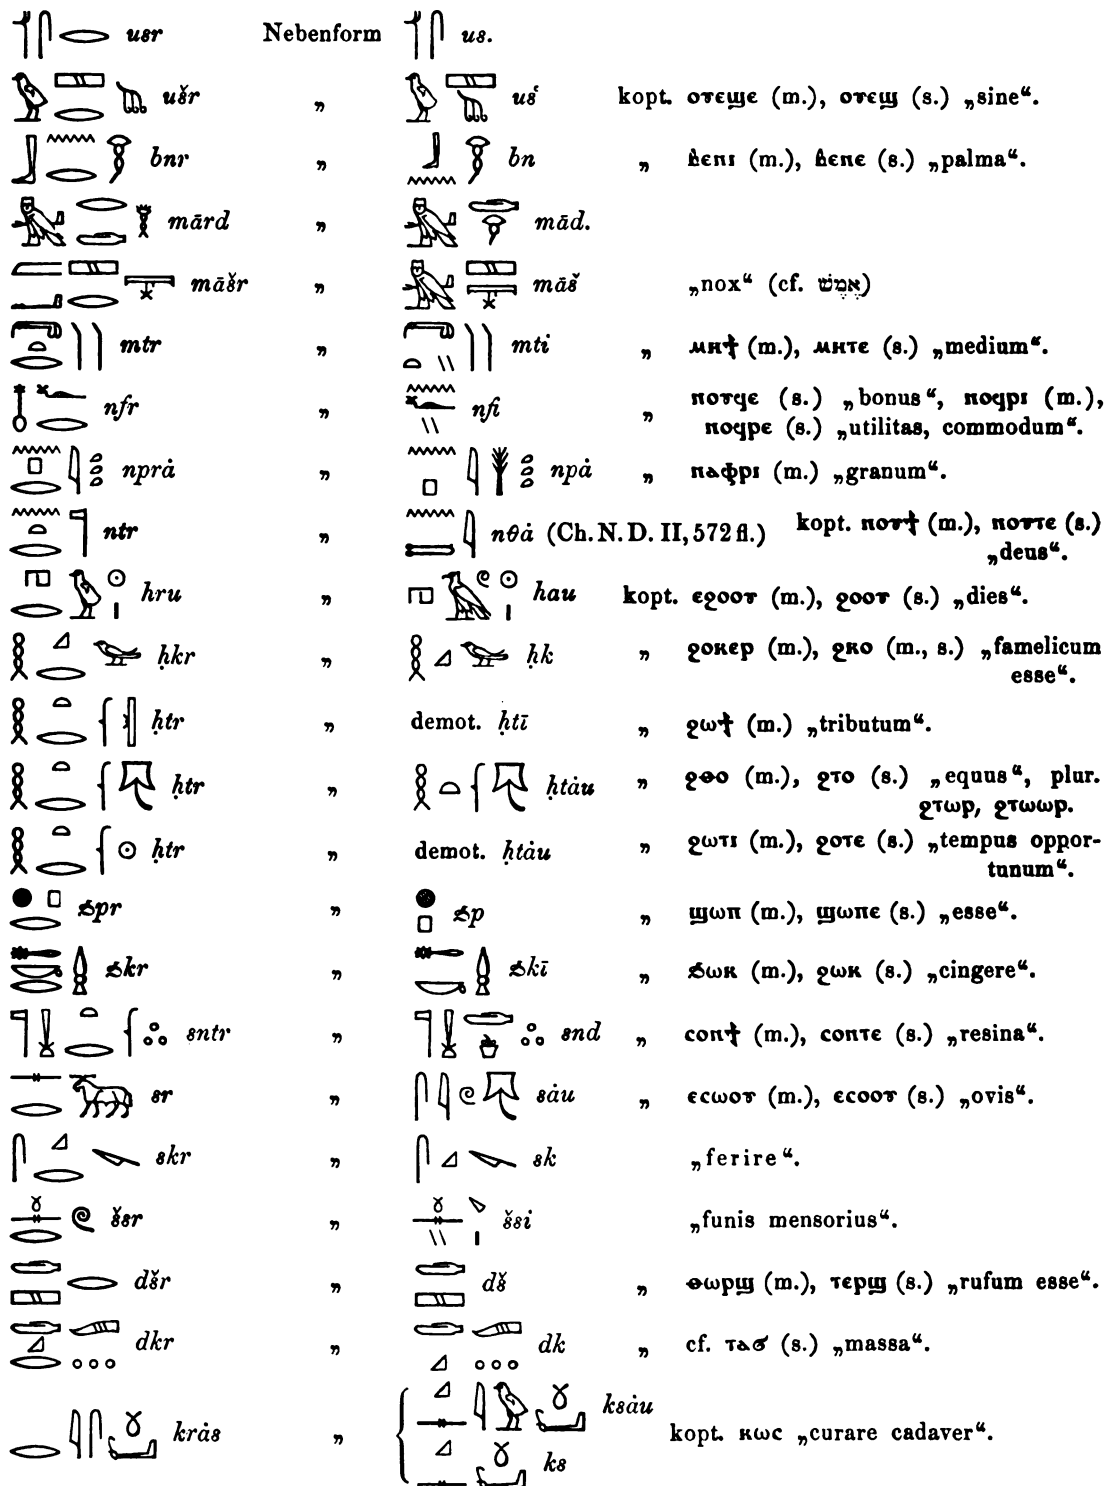 usr Nebenform us.
ušr „ uš kopt. ⲟⲩⲉϣⲉ (m.), ⲟⲩⲉϣ (s.) „sine“.
bnr „ bn „ ⲃⲉⲛⲓ (m.), ⲃⲉⲛⲉ (s.) „palma“.
mārd „ mād.
māšr „ māš „nox“ (cf. אֶמֶשׁ)
mtr „ mtȧ „ ⲙⲏϯ (m.), ⲙⲏⲧⲉ (s.) „medium“.
nfr „ nfi „ ⲛⲟⲩϥⲉ (s.) „bonus“, ⲛⲟϥⲣⲓ (m.),
ⲛⲟϥⲣⲉ (s.) „utilitas, commodum“.
nprȧ „ npȧ „ ⲛⲁⲫⲣⲓ (m.) „granum“.
ntr „ nθȧ (Ch. N. D. II, 572 fl.) kopt. ⲛⲟⲩϯ (m.), ⲛⲟⲩⲧⲉ (s.)
„deus“.
hru „ hau kopt. ⲉϩⲟⲟⲩ (m.), ϩⲟⲟⲩ (s.) „dies“.
ḥkr „ ḥk „ ϩⲟⲕⲉⲣ (m.), ϩⲕⲟ (m., s.) „famelicum
esse“.
ḥtr „ demot. ḥtī „ ϩⲱϯ (m.) „tributum“.
ḥtr „ ḥtȧu „ ϩⲑⲟ (m.), ϩⲧⲟ (s.) „equus“, plur.
ϩⲧⲱⲣ, ϩⲧⲱⲱⲣ.
ḥtr „ demot. ḥtȧu „ ϩⲱⲧⲓ (m.), ϩⲟⲧⲉ (s.) „tempus oppor-
tunum“.
ϧpr „ ϧp „ ϣⲱⲡ (m.), ϣⲱⲡⲉ (s.) „esse“.
ϧkr „ ϧkī „ ϧⲱⲕ (m.), ϩⲱⲕ (s.) „cingere“.
sntr „ snd „ ⲥⲟⲛϯ (m.), ⲥⲟⲛⲧⲉ (s.) „resina“.
sr „ sȧu „ ⲉⲥⲱⲟⲩ (m.), ⲉⲥⲟⲟⲩ (s.) „ovis“.
skr „ sk „ferire“.
šsr „ šsi „funis mensorius“.
dšr „ dš „ ⲑⲱⲣϣ (m.), ⲧⲉⲣϣ (s.) „rufum esse“.
dkr „ dk „ cf. ⲧⲁϭ (s.) „massa“.
ksȧu
krȧs „ kopt. ⲕⲱⲥ „curare cadaver“.
ks